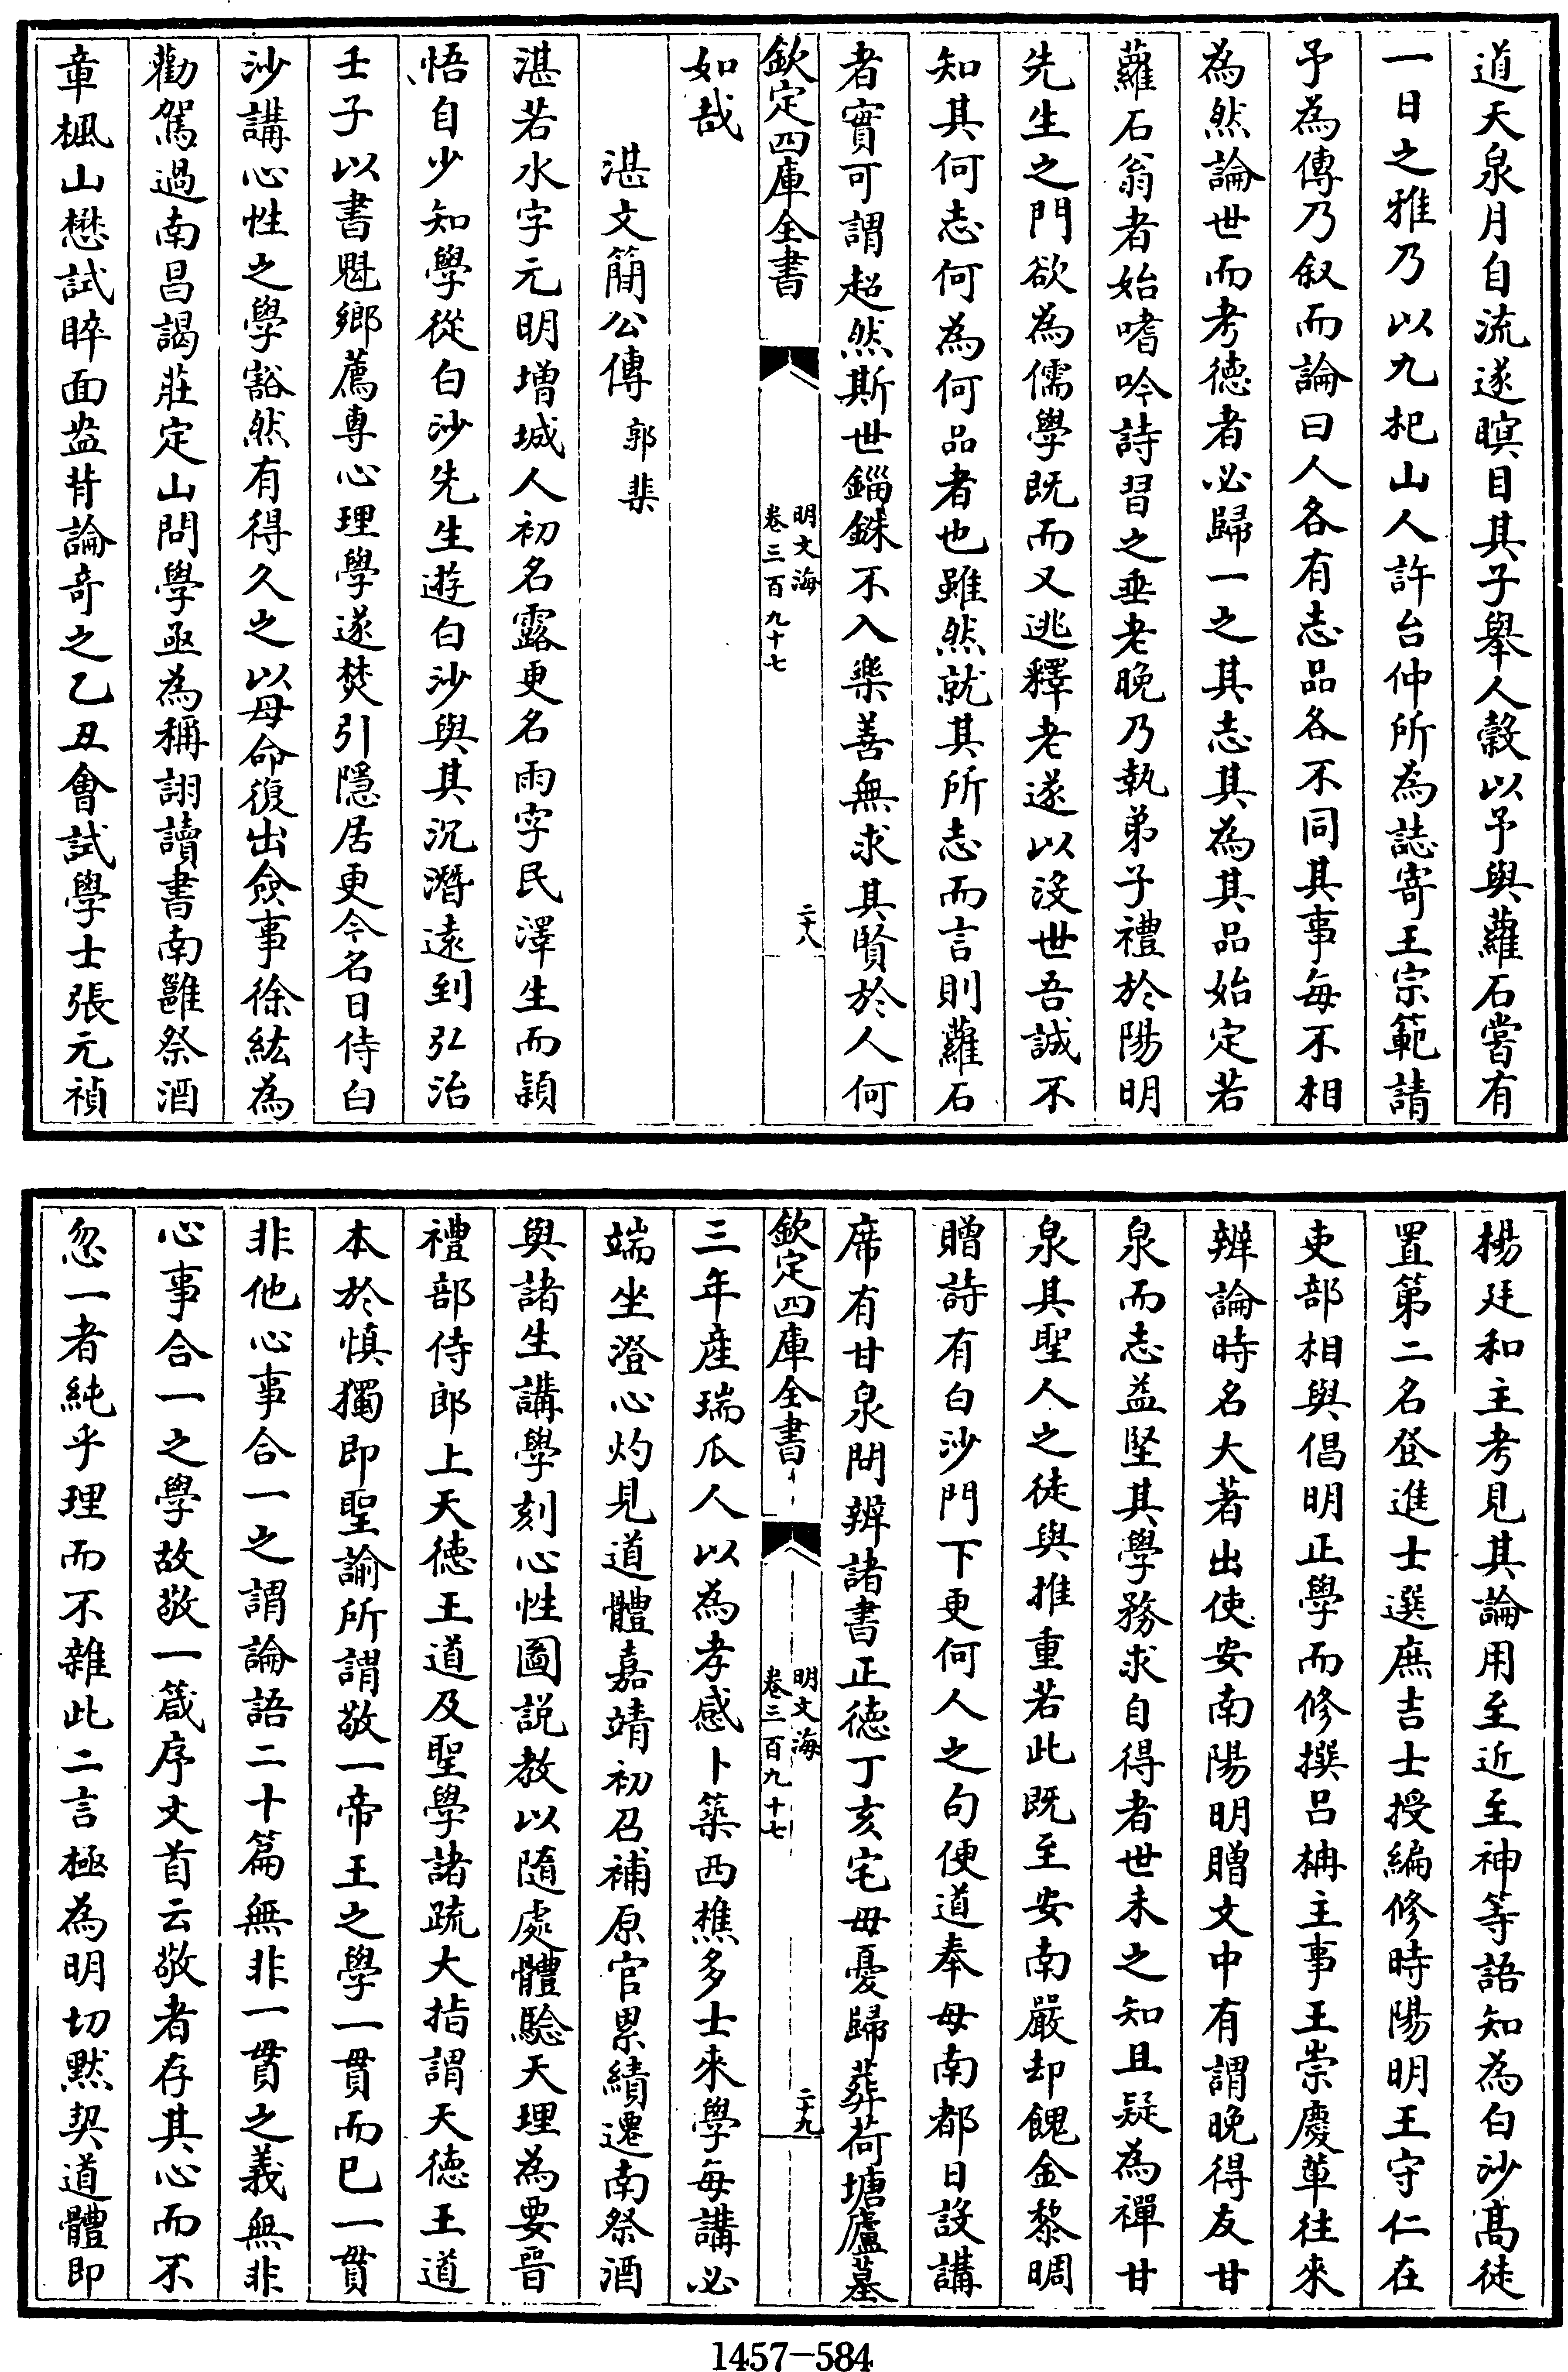 道天泉月自流遂瞑目其子舉人榖以予與蘿石嘗有
一日之雅乃以九杞山人許台仲所為誌寄王宗範請
予為傳乃叙而論曰人各有志品各不同其事每不相
為然論世而考德者必歸一之其志其為其品始定若
蘿石翁者始嗜吟詩習之垂老晚乃執弟子禮於陽明
先生之門欲為儒學既而又逃釋老遂以沒世吾誠不
知其何志何為何品者也雖然就其所志而言則蘿石
者實可謂超然斯世錙銖不入樂善無求其賢於人何
欽定四庫全書
明文海
卷三百九十七
二十八
如哉
湛文簡公傳 郭棐
湛若水字元明增城人初名露更名雨字民澤生而穎
悟自少知學從白沙先生遊白沙與其沉潛遠到弘治
壬子以書魁鄉薦專心理學遂焚引隱居更今名日侍白
沙講心性之學豁然有得久之以母命復出僉事徐紘為
勸駕過南昌謁莊定山問學亟為稱詡讀書南雝祭酒
章楓山懋試睟面盎背論奇之乙丑會試學士張元禎
楊廷和主考見其論用至近至神等語知為白沙髙徒
置第二名登進士選庶吉士授編修時陽明王守仁在
吏部相與倡明正學而修撰呂柟主事王崇慶軰往來
辨論時名大著出使安南陽明贈文中有謂晚得友甘
泉而志益堅其學務求自得者世未之知且疑為禪甘
泉其聖人之徒與推重若此既至安南嚴却餽金黎晭
贈詩有白沙門下更何人之句便道奉母南都日設講
席有甘泉問辨諸書正德丁亥宅母憂歸葬荷塘廬墓
欽定四庫全書
明文海
卷三百九十七
二十九
三年産瑞瓜人以為孝感卜築西樵多士來學每講必
端坐澄心灼見道體嘉靖初召補原官累績遷南祭酒
與諸生講學刻心性圖説教以隨處體驗天理為要晉
禮部侍郎上天德王道及聖學諸疏大指謂天德王道
本於慎獨即聖諭所謂敬一帝王之學一貫而已一貫
非他心事合一之謂論語二十篇無非一貫之義無非
心事合一之學故敬一箴序文首云敬者存其心而不
忽一者純乎理而不雜此二言極為明切默契道體即
1457-584